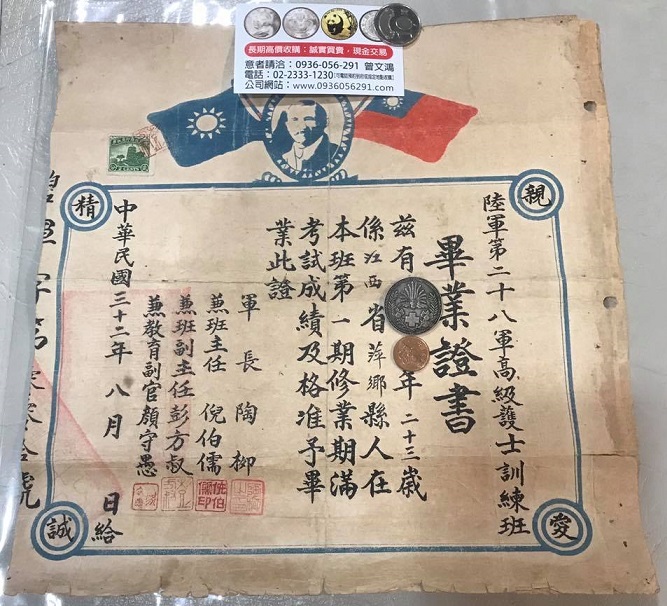 長期高價收購：誠實買賣，現金交易
意者請洽：0936-056-291 曾文鴻
電話：02-2333-1230
公司網站：www.0936056291.com
親
愛
精
誠
陸軍第二十八軍高級護士訓練班
畢業證書
茲有 年二十三歲
係江西省萍鄉縣人在
本班第一期修業期滿
考試成績及格准予畢
業此證
軍長陶柳
兼班主任 倪伯儒
兼班副主任彭方叔
兼教育副官顏守愚
中華民國三十二年八月 日給
字第
號